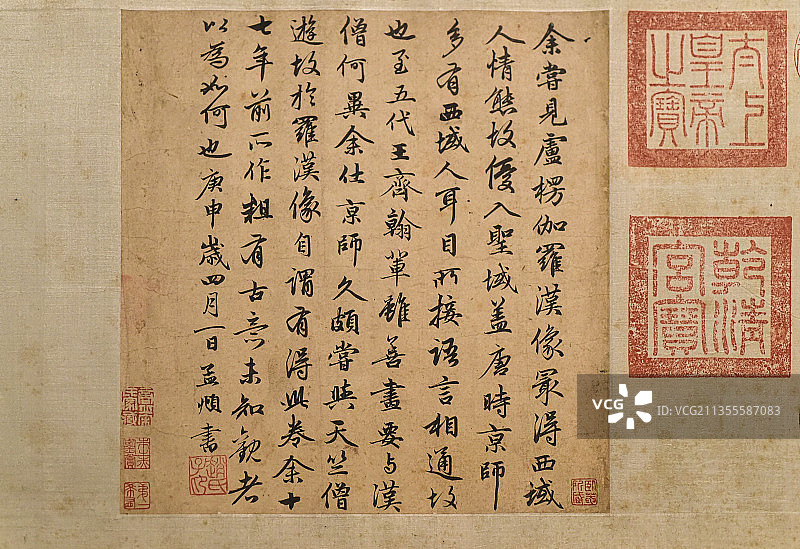 太上
皇帝
之寶
乾清
宮寶
余嘗見盧楞伽羅漢像最得西域
人情態故優入聖域蓋唐時京師
多有西域人耳目所接語言相通故
也至五代王齊翰輩雖善畫要与漢
僧何異余仕京師久頗嘗與天竺僧
遊故於羅漢像自謂有得此卷余十
七年前所作粗有古意未知觀者
以為如何也庚申歲四月一日孟頫書
趙氏
子昂
VCG
VCG211355587083